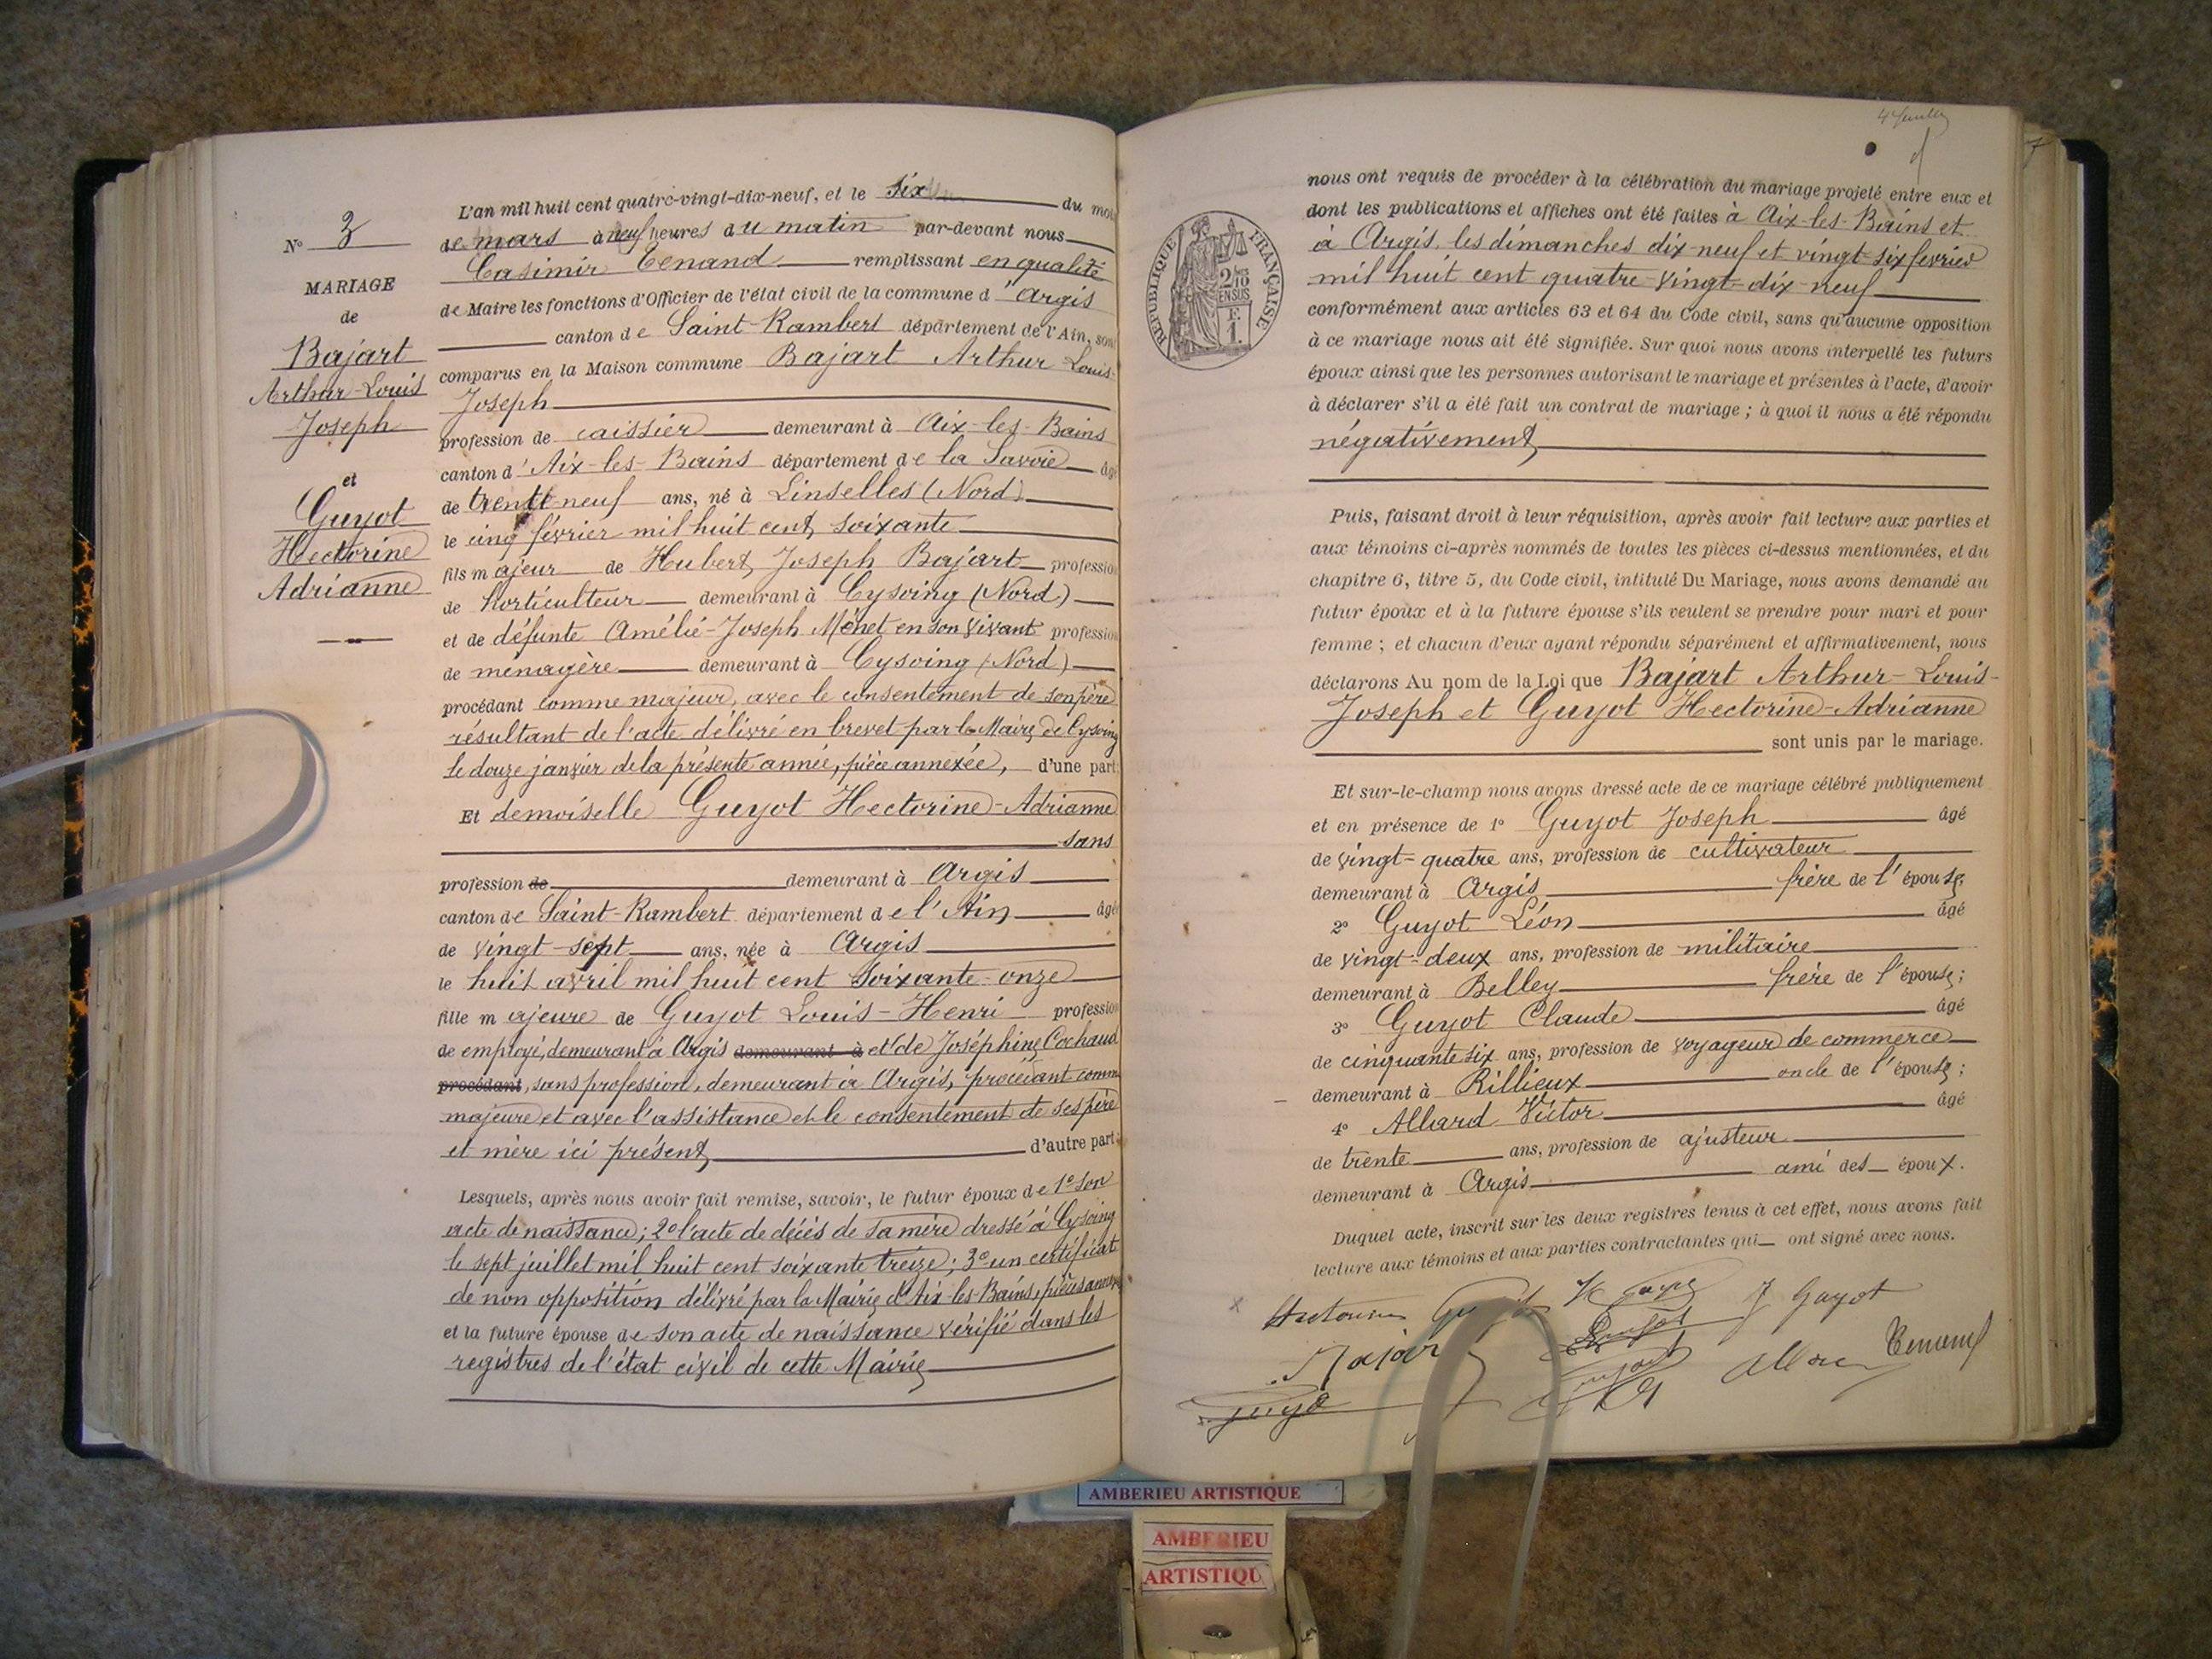 L'an mil huit cent quatre-vingt-dix-neuf, et le six du mois
de mars à neuf heures du matin par-devant nous
Casimir Tenand remplissant en qualité
de Maire les fonctions d'Officier de l'état civil de la commune d'Argis
canton de Saint-Rambert département de l'Ain, sont
comparus en la Maison commune Bajart Arthur-Louis-
Joseph
profession de caissier demeurant à Aix-les-Bains
canton d'Aix-les-Bains département de la Savoie âgé
de trente-neuf ans, né à Linselles (Nord)
le cinq février mil huit cent soixante
fils majeur de Hubert Joseph Bajart profession
de horticulteur demeurant à Cysoing (Nord)
et de défunte Amélie-Joseph Monet en son vivant profession
de ménagère demeurant à Cysoing (Nord)
procédant comme majeur, avec le consentement de son père
résultant de l'acte délivré en brevet par le Maire de Cysoing
le douze janvier de la présente année, pièce annexée, d'une part;
Et demoiselle Guyot Hectorine-Adrianne
sans
profession de demeurant à Argis
canton de Saint-Rambert département de l'Ain âgée
de vingt-sept ans, née à Argis
le huit avril mil huit cent soixante-onze
fille majeure de Guyot Louis-Henri profession
de employé, demeurant à Argis demeurant à et de Joséphine Cochaud
procédant, sans profession, demeurant à Argis, procédant comme
majeure et avec l'assistance et le consentement de ses père
et mère ici présent d'autre part;
Lesquels, après nous avoir fait remise, savoir, le futur époux de 1° son
acte de naissance; 2° l'acte de décès de sa mère dressé à Cysoing
le sept juillet mil huit cent soixante treize; 3° un certificat
de non opposition délivré par la Mairie d'Aix-les-Bains, pièces annexées
et la future épouse de son acte de naissance vérifié dans les
registres de l'état civil de cette Mairie
N° 3
MARIAGE
de
Bajart
Arthur-Louis
Joseph
et
Guyot
Hectorine
Adrianne
nous ont requis de procéder à la célébration du mariage projeté entre eux et
dont les publications et affiches ont été faites à Aix-les-Bains et
à Argis, les dimanches dix-neuf et vingt-six février
mil huit cent quatre-vingt-dix-neuf
conformément aux articles 63 et 64 du Code civil, sans qu'aucune opposition
à ce mariage nous ait été signifiée. Sur quoi nous avons interpellé les futurs
époux ainsi que les personnes autorisant le mariage et présentes à l'acte, d'avoir
à déclarer s'il a été fait un contrat de mariage; à quoi il nous a été répondu
négativement
Puis, faisant droit à leur réquisition, après avoir fait lecture aux parties et
aux témoins ci-après nommés de toutes les pièces ci-dessus mentionnées, et du
chapitre 6, titre 5, du Code civil, intitulé Du Mariage, nous avons demandé au
futur époux et à la future épouse s'ils veulent se prendre pour mari et pour
femme; et chacun d'eux ayant répondu séparément et affirmativement, nous
déclarons Au nom de la Loi que Bajart Arthur-Louis-
Joseph et Guyot Hectorine-Adrianne
sont unis par le mariage.
Et sur-le-champ nous avons dressé acte de ce mariage célébré publiquement
et en présence de 1° Guyot Joseph âgé
de vingt-quatre ans, profession de cultivateur
demeurant à Argis frère de l'épouse;
2° Guyot Léon âgé
de vingt-deux ans, profession de militaire
demeurant à Belley frère de l'épouse;
3° Guyot Claude âgé
de cinquante six ans, profession de voyageur de commerce
demeurant à Rillieux oncle de l'épouse;
4° Allard Victor âgé
de trente ans, profession de ajusteur
demeurant à Argis ami des époux.
Duquel acte, inscrit sur les deux registres tenus à cet effet, nous avons fait
lecture aux témoins et aux parties contractantes qui ont signé avec nous.
J Guyot
Tenand
RÉPUBLIQUE FRANÇAISE
2/10
EN SUS
F.
1.
AMBERIEU ARTISTIQUE
AMBERIEU
ARTISTIQU